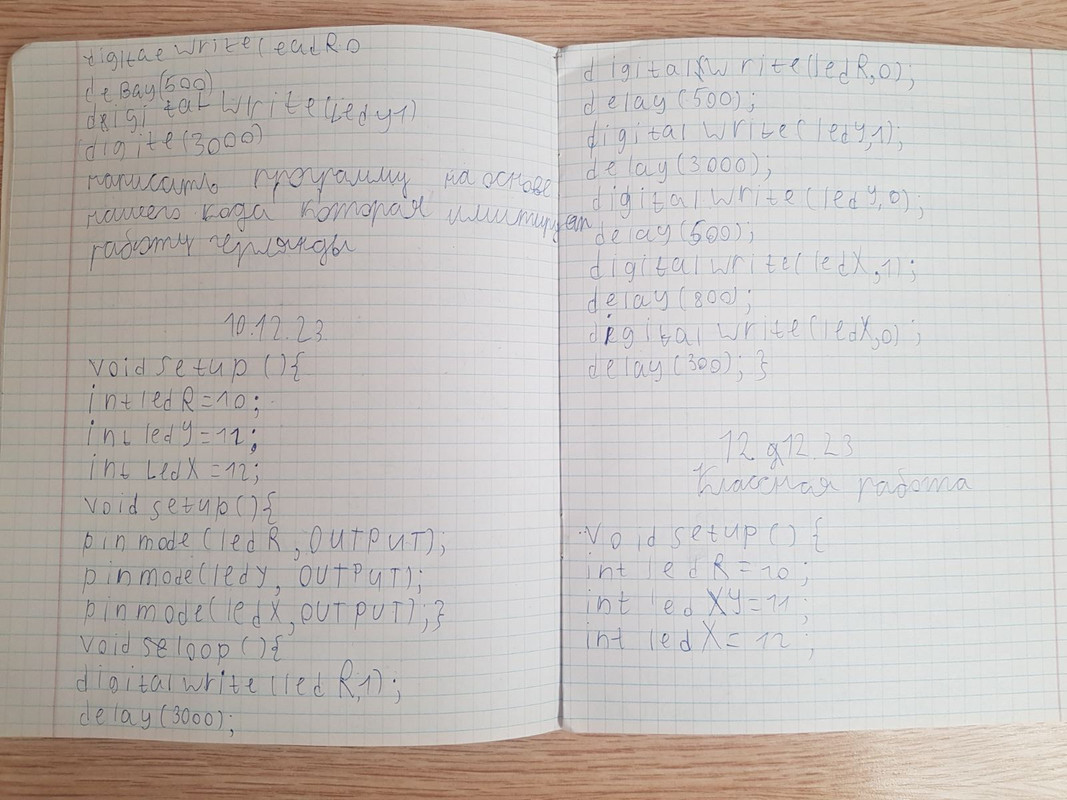 digitae write(eadR.0
deBay(500)
digital write(ledy1)
digite(3000)
написать программу на основе
нашего кода которая имитирует
работу герлянды
10.12.23.
void setup (){
int led R=10;
int led Y=11;
int Led X=12;
void setup(){
pinmode (led R, OUTPUT);
pinmode(ledY, OUTPUT);
pinmode(ledX, OUTPUT);}
void loop (){
digitalwrite (led R,1);
delay(3000);
digital write(led R,0);
delay(500);
digital write(ledY,1);
delay(3000);
digital write(ledY,0);
delay(500);
digital write(ledX,1);
delay(800);
digital write(ledX,0);
delay(300); }
12.12.23
Классная работа
void setup () {
int led R=10;
int led Y=11;
int led X=12;